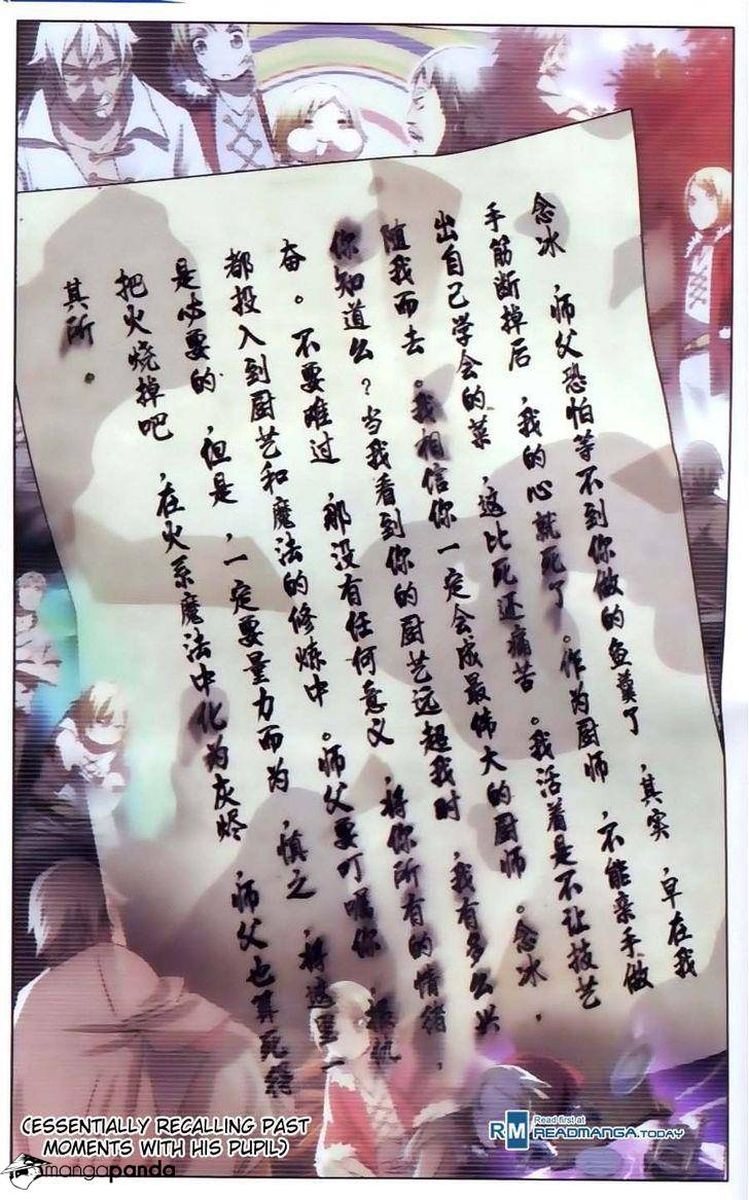 念冰,师父恐怕等不到你做的鱼羹了,其实,早在我
手筋断掉后,我的心就死了。作为厨师,不能亲手做
出自己学会的菜,这比死还痛苦。我活着是不让技艺
随我而去。我相信你一定会成最伟大的厨师。念冰,
你知道么?当我看到你的厨艺远超我时,我有多么兴
奋。不要难过,那没有任何意义,将你所有的情绪,
都投入到厨艺和魔法的修炼中。师父要叮嘱你,
是必要的,但是,一定要量力而为,慎之,将这里一
把火烧掉吧,在火系魔法中化为灰烬,师父也算死得
其所。
(ESSENTIALLY RECALLING PAST
MOMENTS WITH HIS PUPIL)
mangapanda
RM
Read first at
READMANGA.TODAY